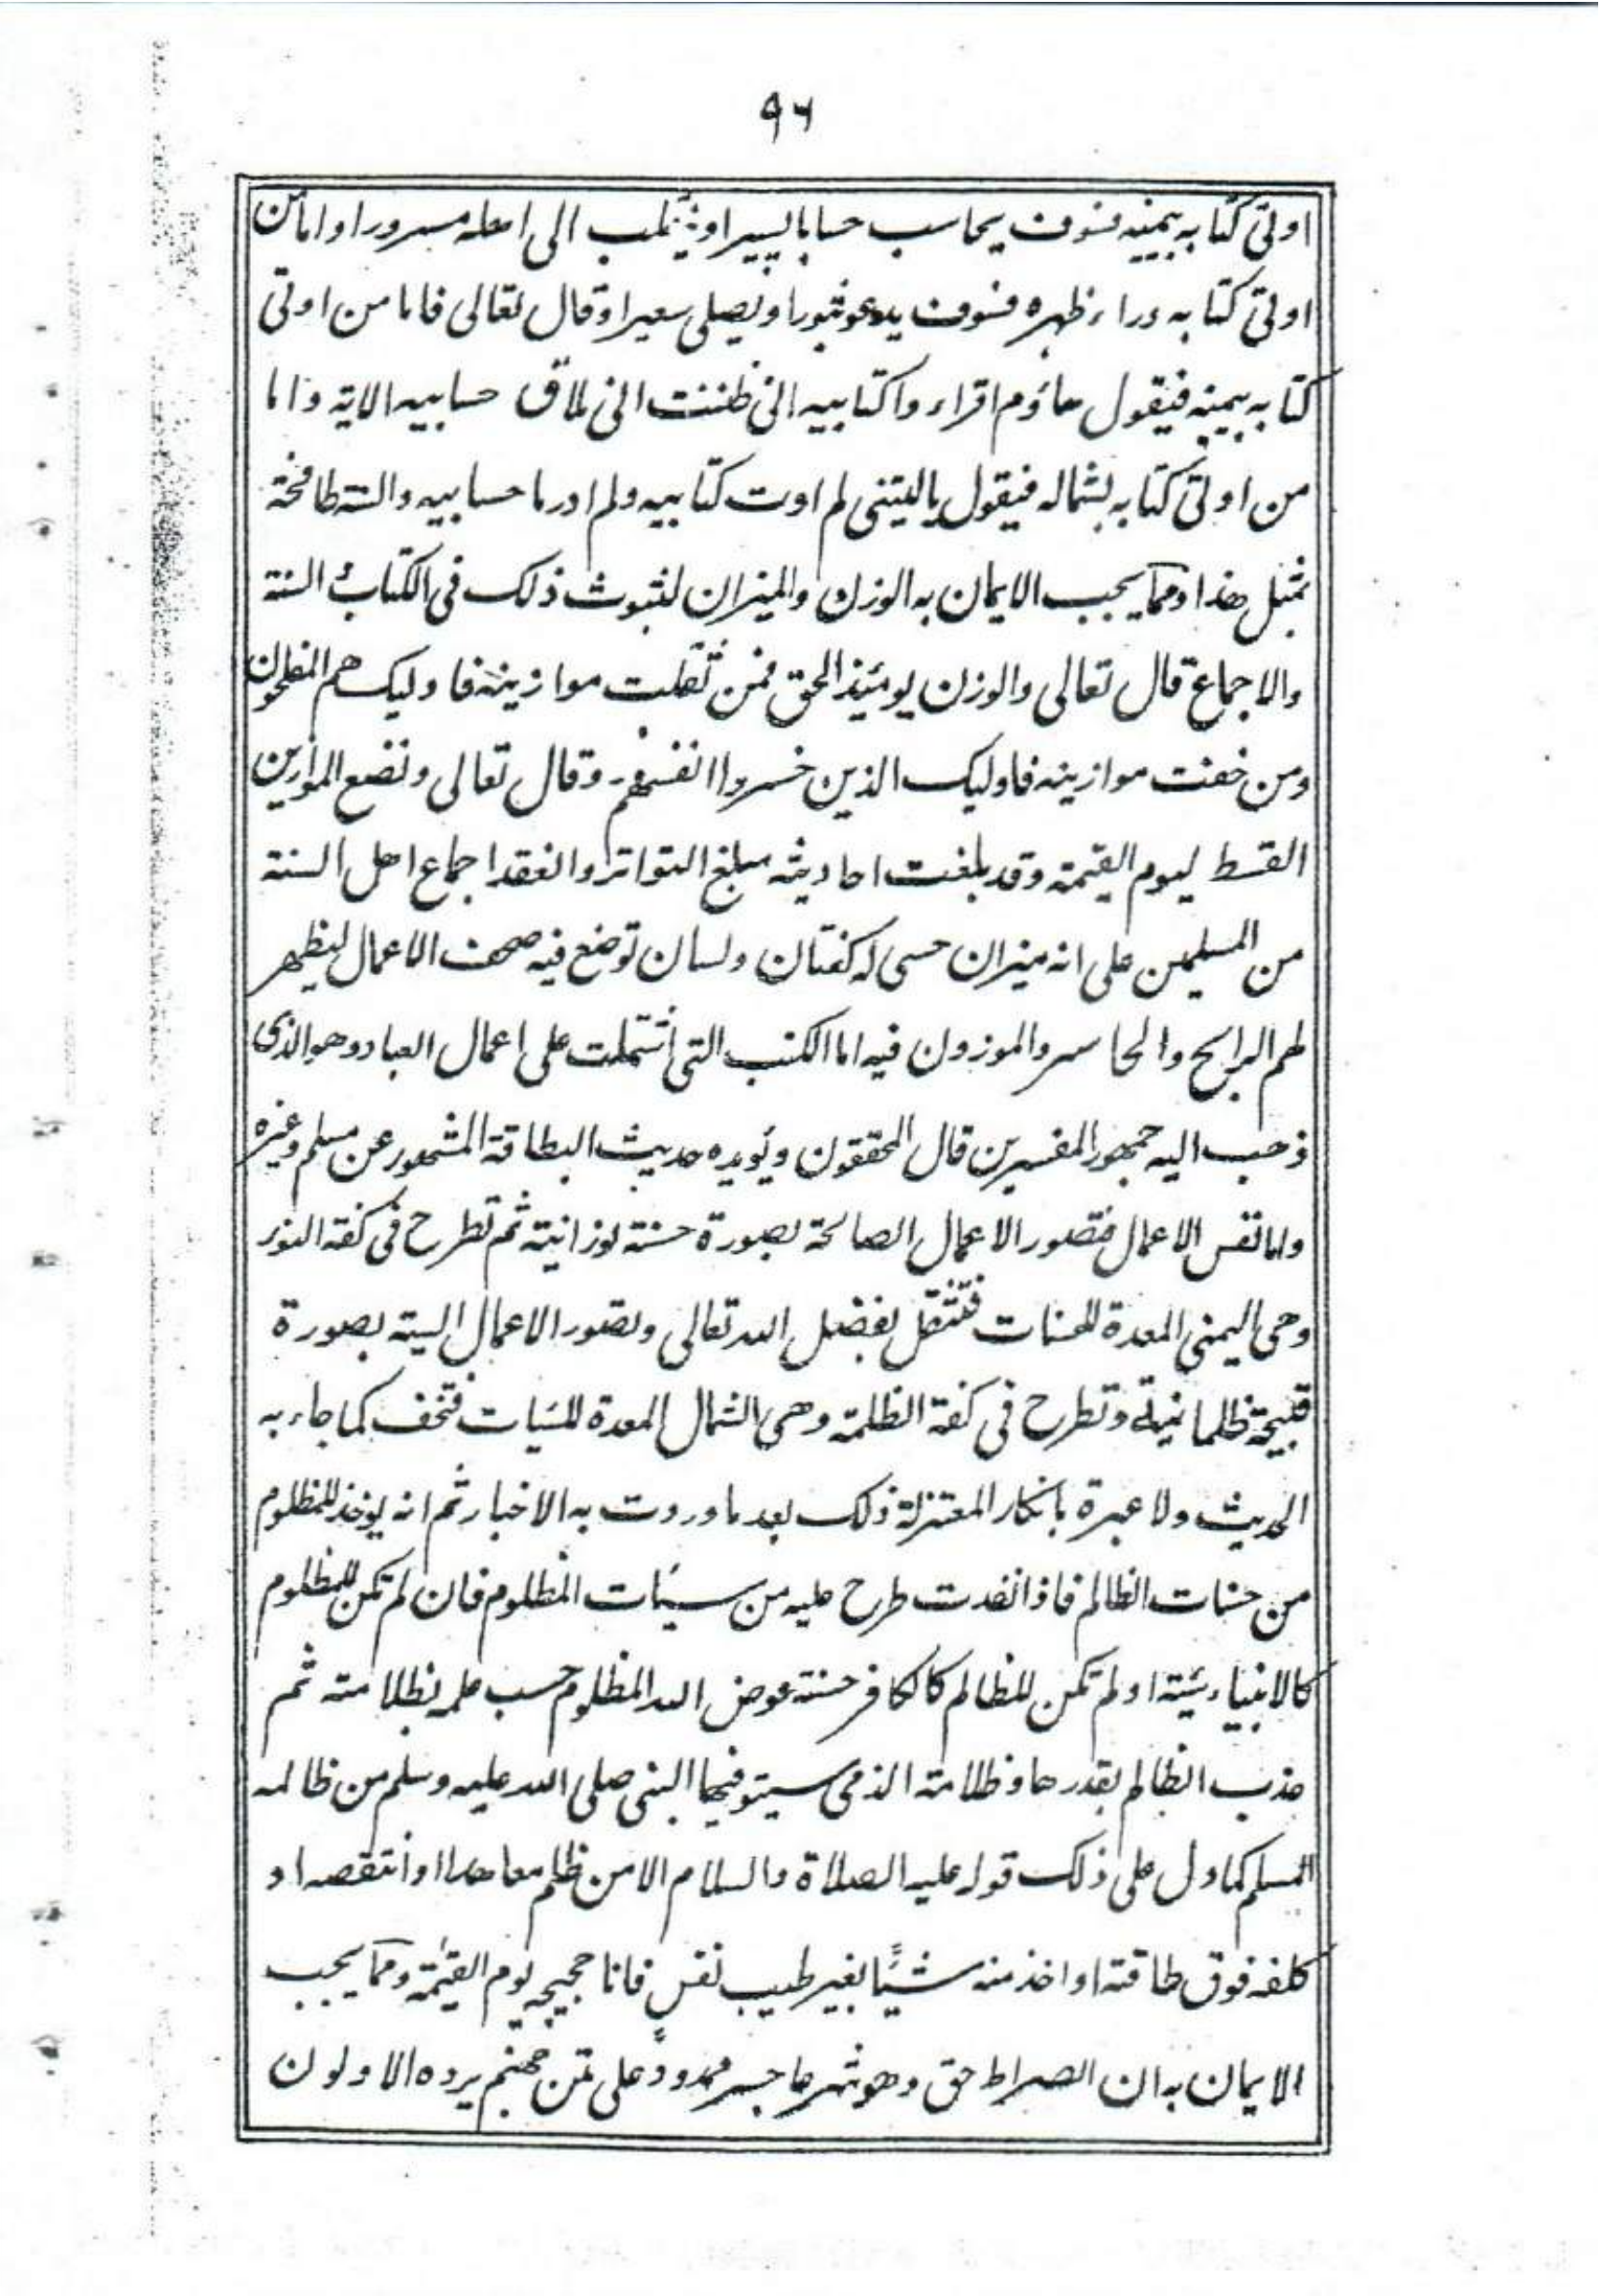 ٩٦
اوتى كتابه بيمينه فسوف يحاسب حسابا يسيرا وينقلب الى اهله مسرورا واما من
اوتى كتابه وراء ظهره فسوف يدعو ثبورا ويصلى سعيرا وقال تعالى فاما من اوتى
كتابه بيمينه فيقول هاؤم اقراء واكتابيه انى ظننت انى ملاق حسابيه الاية واما
من اوتى كتابه بشماله فيقول ياليتنى لم اوت كتابيه ولم ادر ما حسابيه والسنة طافحة
بمثل هذا ومما يجب الايمان به الوزن والميزان لثبوت ذلك فى الكتاب السنة
والاجماع قال تعالى والوزن يومئذ الحق فمن ثقلت موازينه فاوليك هم المفلحون
ومن خفت موازينه فاوليك الذين خسروا انفسهم وقال تعالى ونضع الموازين
القسط ليوم القيمة وقد بلغت احاديثه مبلغ التواتر وانعقد اجماع اهل السنة
من المسلمين على انه ميزان حسى له كفتان ولسان توضع فيه صحف الاعمال ليظهر
لهم الرابح والخاسر والموزون فيه اما الكتب التى اشتملت على اعمال العباد وهو الذى
ذهب اليه جمهور المفسرين قال المحققون ويويده حديث البطاقة المشهور عن مسلم وغيره
واما نفس الاعمال فتصور الاعمال الصالحة بصورة حسنة نورانية ثم تطرح فى كفة النور
وهى اليمنى المعدة للحسنات فتثقل بفضل الله تعالى وتصور الاعمال السيئة بصورة
قبيحة ظلمانية وتطرح فى كفة الظلمة وهى الشمال المعدة للسيات فتخف كما جاء به
الحديث ولا عبرة بانكار المعتزلة ذلك بعد ما وردت به الاخبار ثم انه يوخذ للمظلوم
من حسنات الظالم فاذا نفدت طرح عليه من سيئات المظلوم فان لم تكن للمظلوم
كالانبياء سيئة او لم تكن للظالم كالكافر حسنة عوض الله المظلوم حسب علمه بظلامته ثم
عذب الظالم بقدرها وظلامة الذمى سيتوفيها النبى صلى الله عليه وسلم من ظالمه
المسلم كما دل على ذلك قوله عليه الصلاة والسلام الا من ظلم معاهدا او انتقصه او
كلفه فوق طاقته او اخذ منه شيئًا بغير طيب نفس فانا حجيجه يوم القيمة ومما يجب
الايمان به ان الصراط حق وهو شرعا جسر ممدود على متن جهنم يرده الاولون